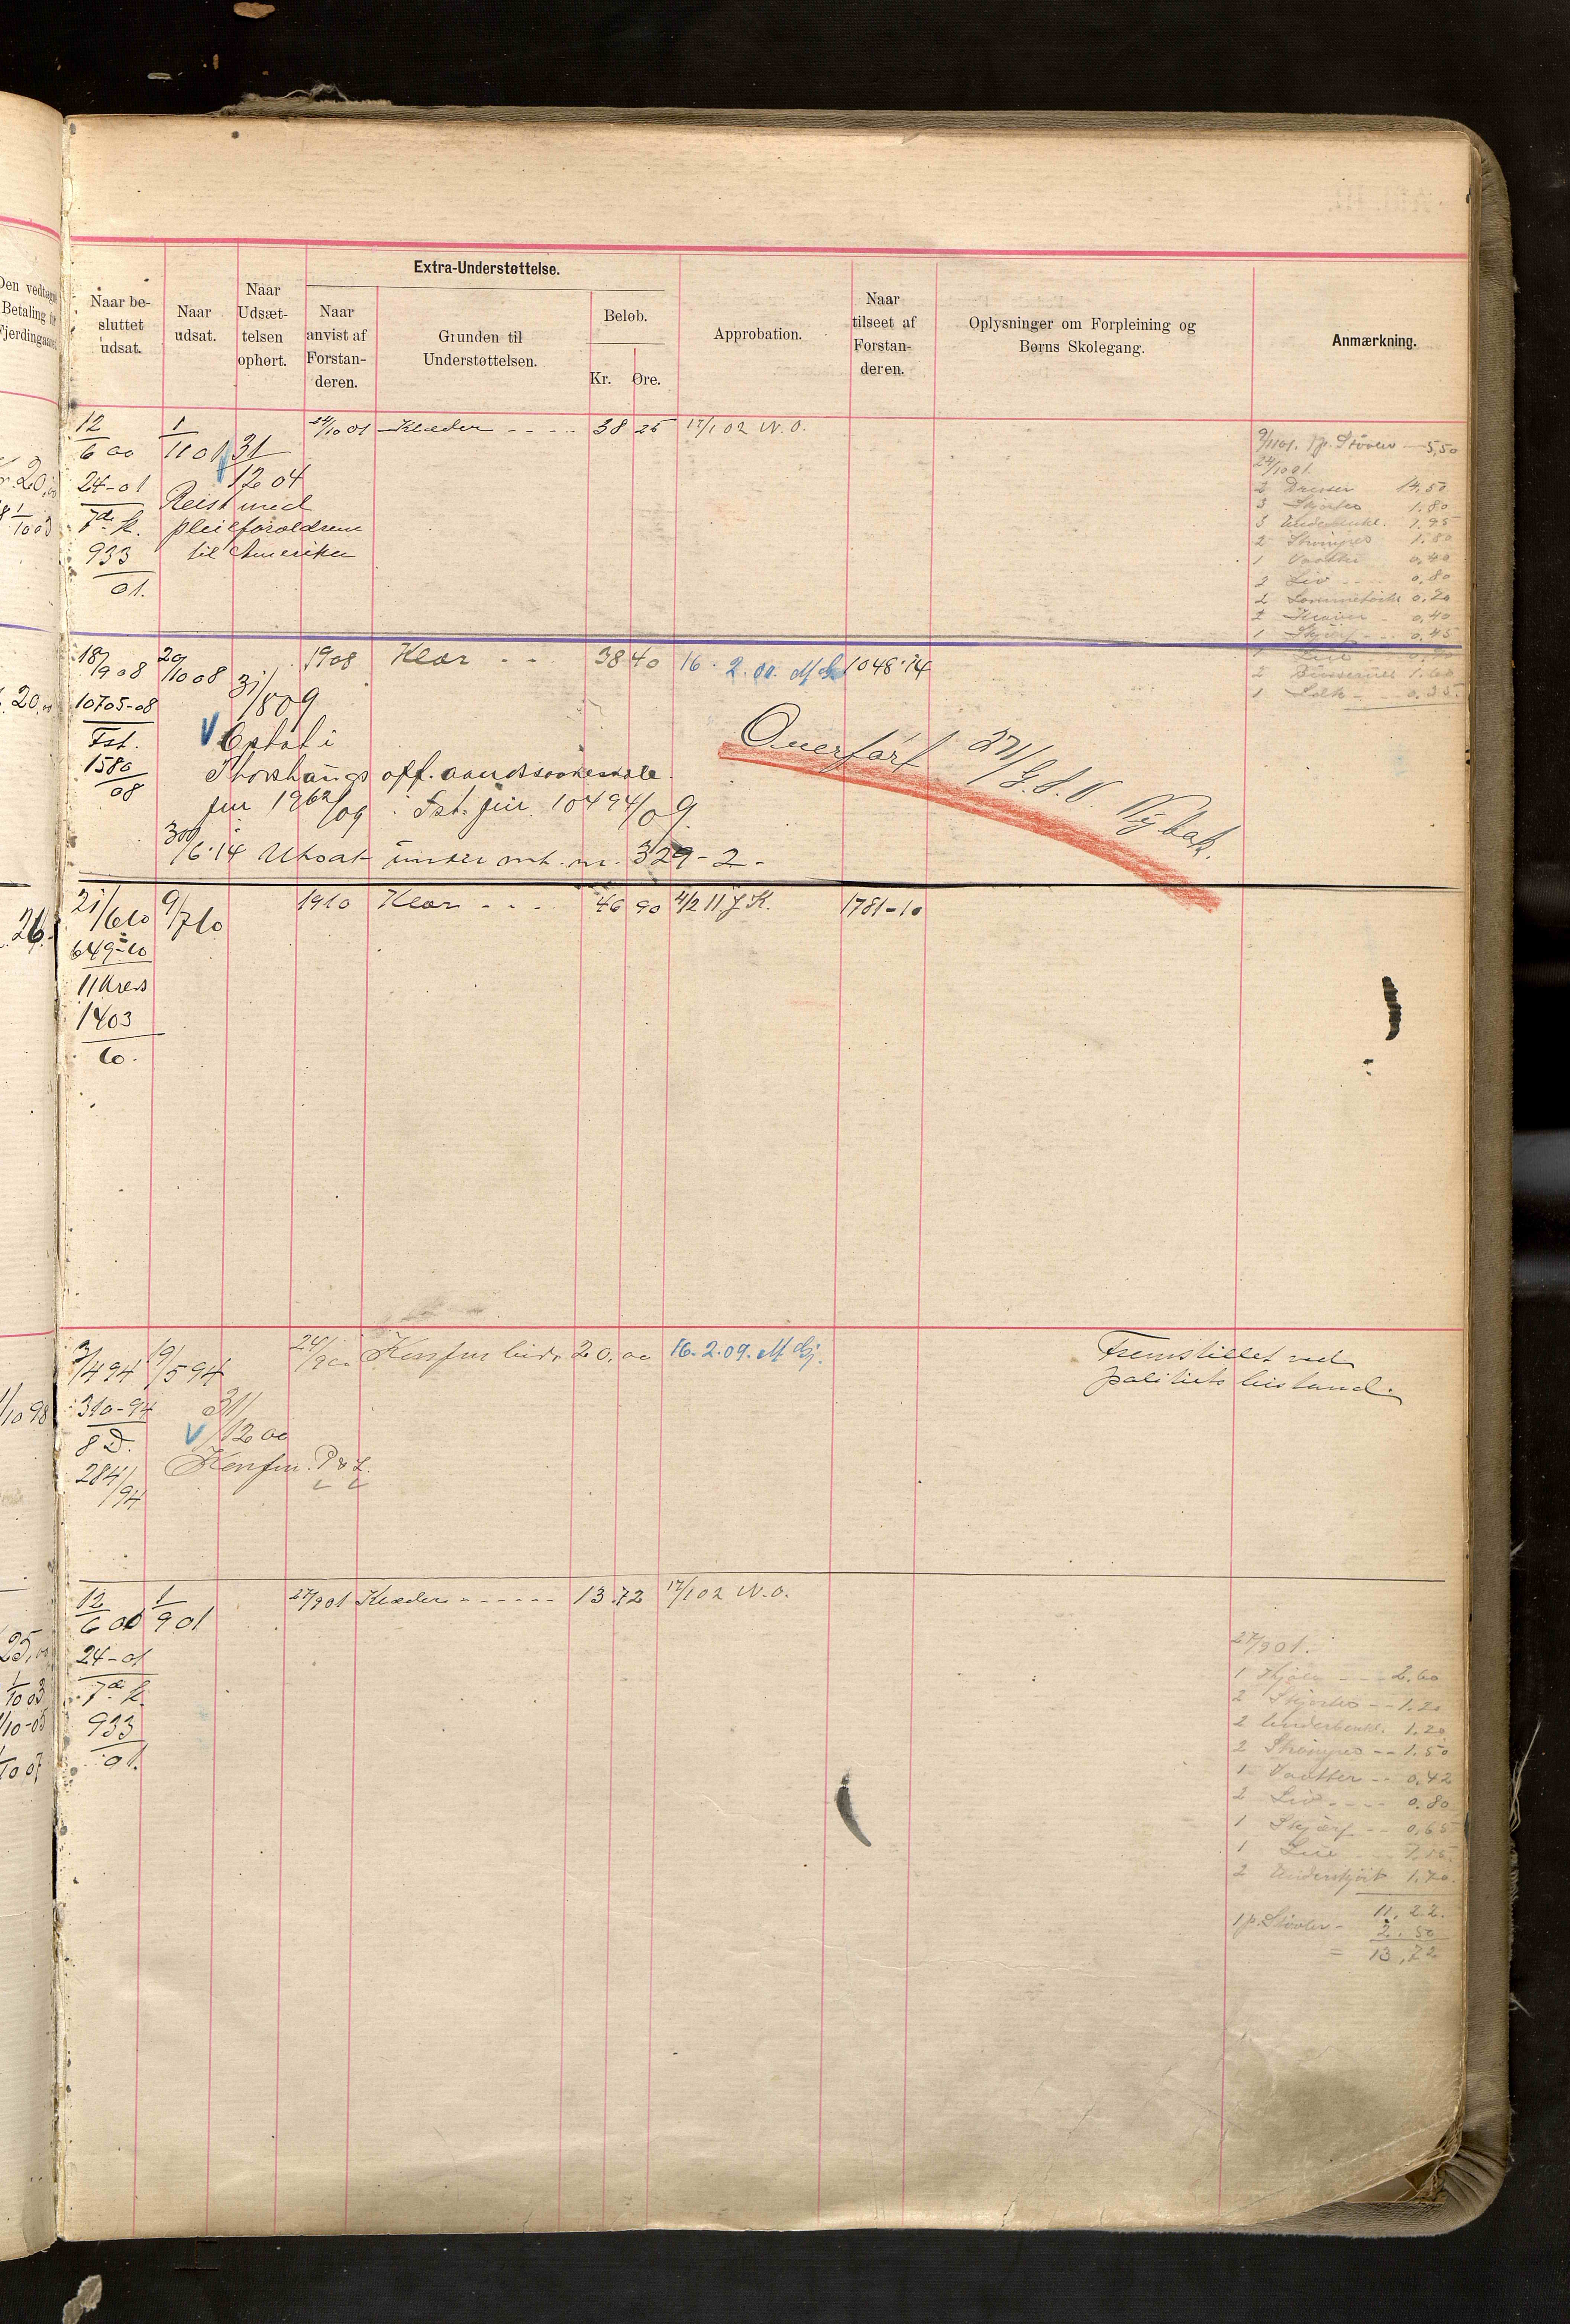 Den vedtagne
Betaling
Fjerdingaaret
Naar be-
sluttet
udsat.
Naar
udsat.
Naar
Udsæt-
telsen
ophørt.
Extra-Understøttelse.
Naar
anvist af
Forstan-
deren.
Grunden til
Understøttelsen.
Beløb.
Kr. Øre.
Approbation.
Naar
tilseet af
Forstan-
deren.
Oplysninger om Forpleining og
Børns Skolegang.
Anmærkning.
12/6 00 1/11 01 24/10 01 Klæder - - - - 38 25 17/1 02 N. O.
31/12 04
24-01
7de K.
933
01.
Reist med
pleieforældrene
til Amerika
9/11 01. 1 p. Støvler - 5,50
24/10 01.
2 Dresser 14.50
3 Skjorter 1.80
3 Underbenkl. 1.95
2 Strømper 1.80
1 Vaatter 0,40
2 Liv - - 0,80
2 Lommetørkl 0.20
2 0,40
1 Skjærf - - 0,45
1 Lue
2
1
18/9 08 20/10 08 1908 Klær - - 38 40 16. 2. 1048-14
31/8 09
10705-08
Fst.
1580
08
Optat i
Thorshaugs off. aandssvakeskole
jnr 1962/09. Fst. jnr. 10494/09
30/6-14 Utsat under nr. 329-2-
Overført
20,00
21/6 10 9/7 10 1910 Klær - - - 46 90 4/2 11 J K. 1781-10
649-10
11 Kreds
1403
10.
26.
3/4 94 19/5 94 Konfm bidr. 20,00 16. 2. 09.
310-94
8 D.
284/94
31/12 00
Konfm.
Fremstillet ved
politiets bistand.
1/10 98
12/6 00 1/9 01 27/9 01 Klæder - - - - - - 13.72 17/1 02 N. O.
24-01
7de K.
933
01.
25,00
1/10 03
1/10-05
1/10 07
27/9 01.
1 Kjole - - - 2.60
2 Skjorter - - 1.20
2 Underbenkl. 1.20
2 Strømper - - 1.50
1 Vaatter - - 0,42
2 Liv - - - - 0.80
1 Skjærf - - 0,65
1 Lue
2 Underskjørt 1.70.
11,22.
1 p. Støvler - 2.50
= 13,72